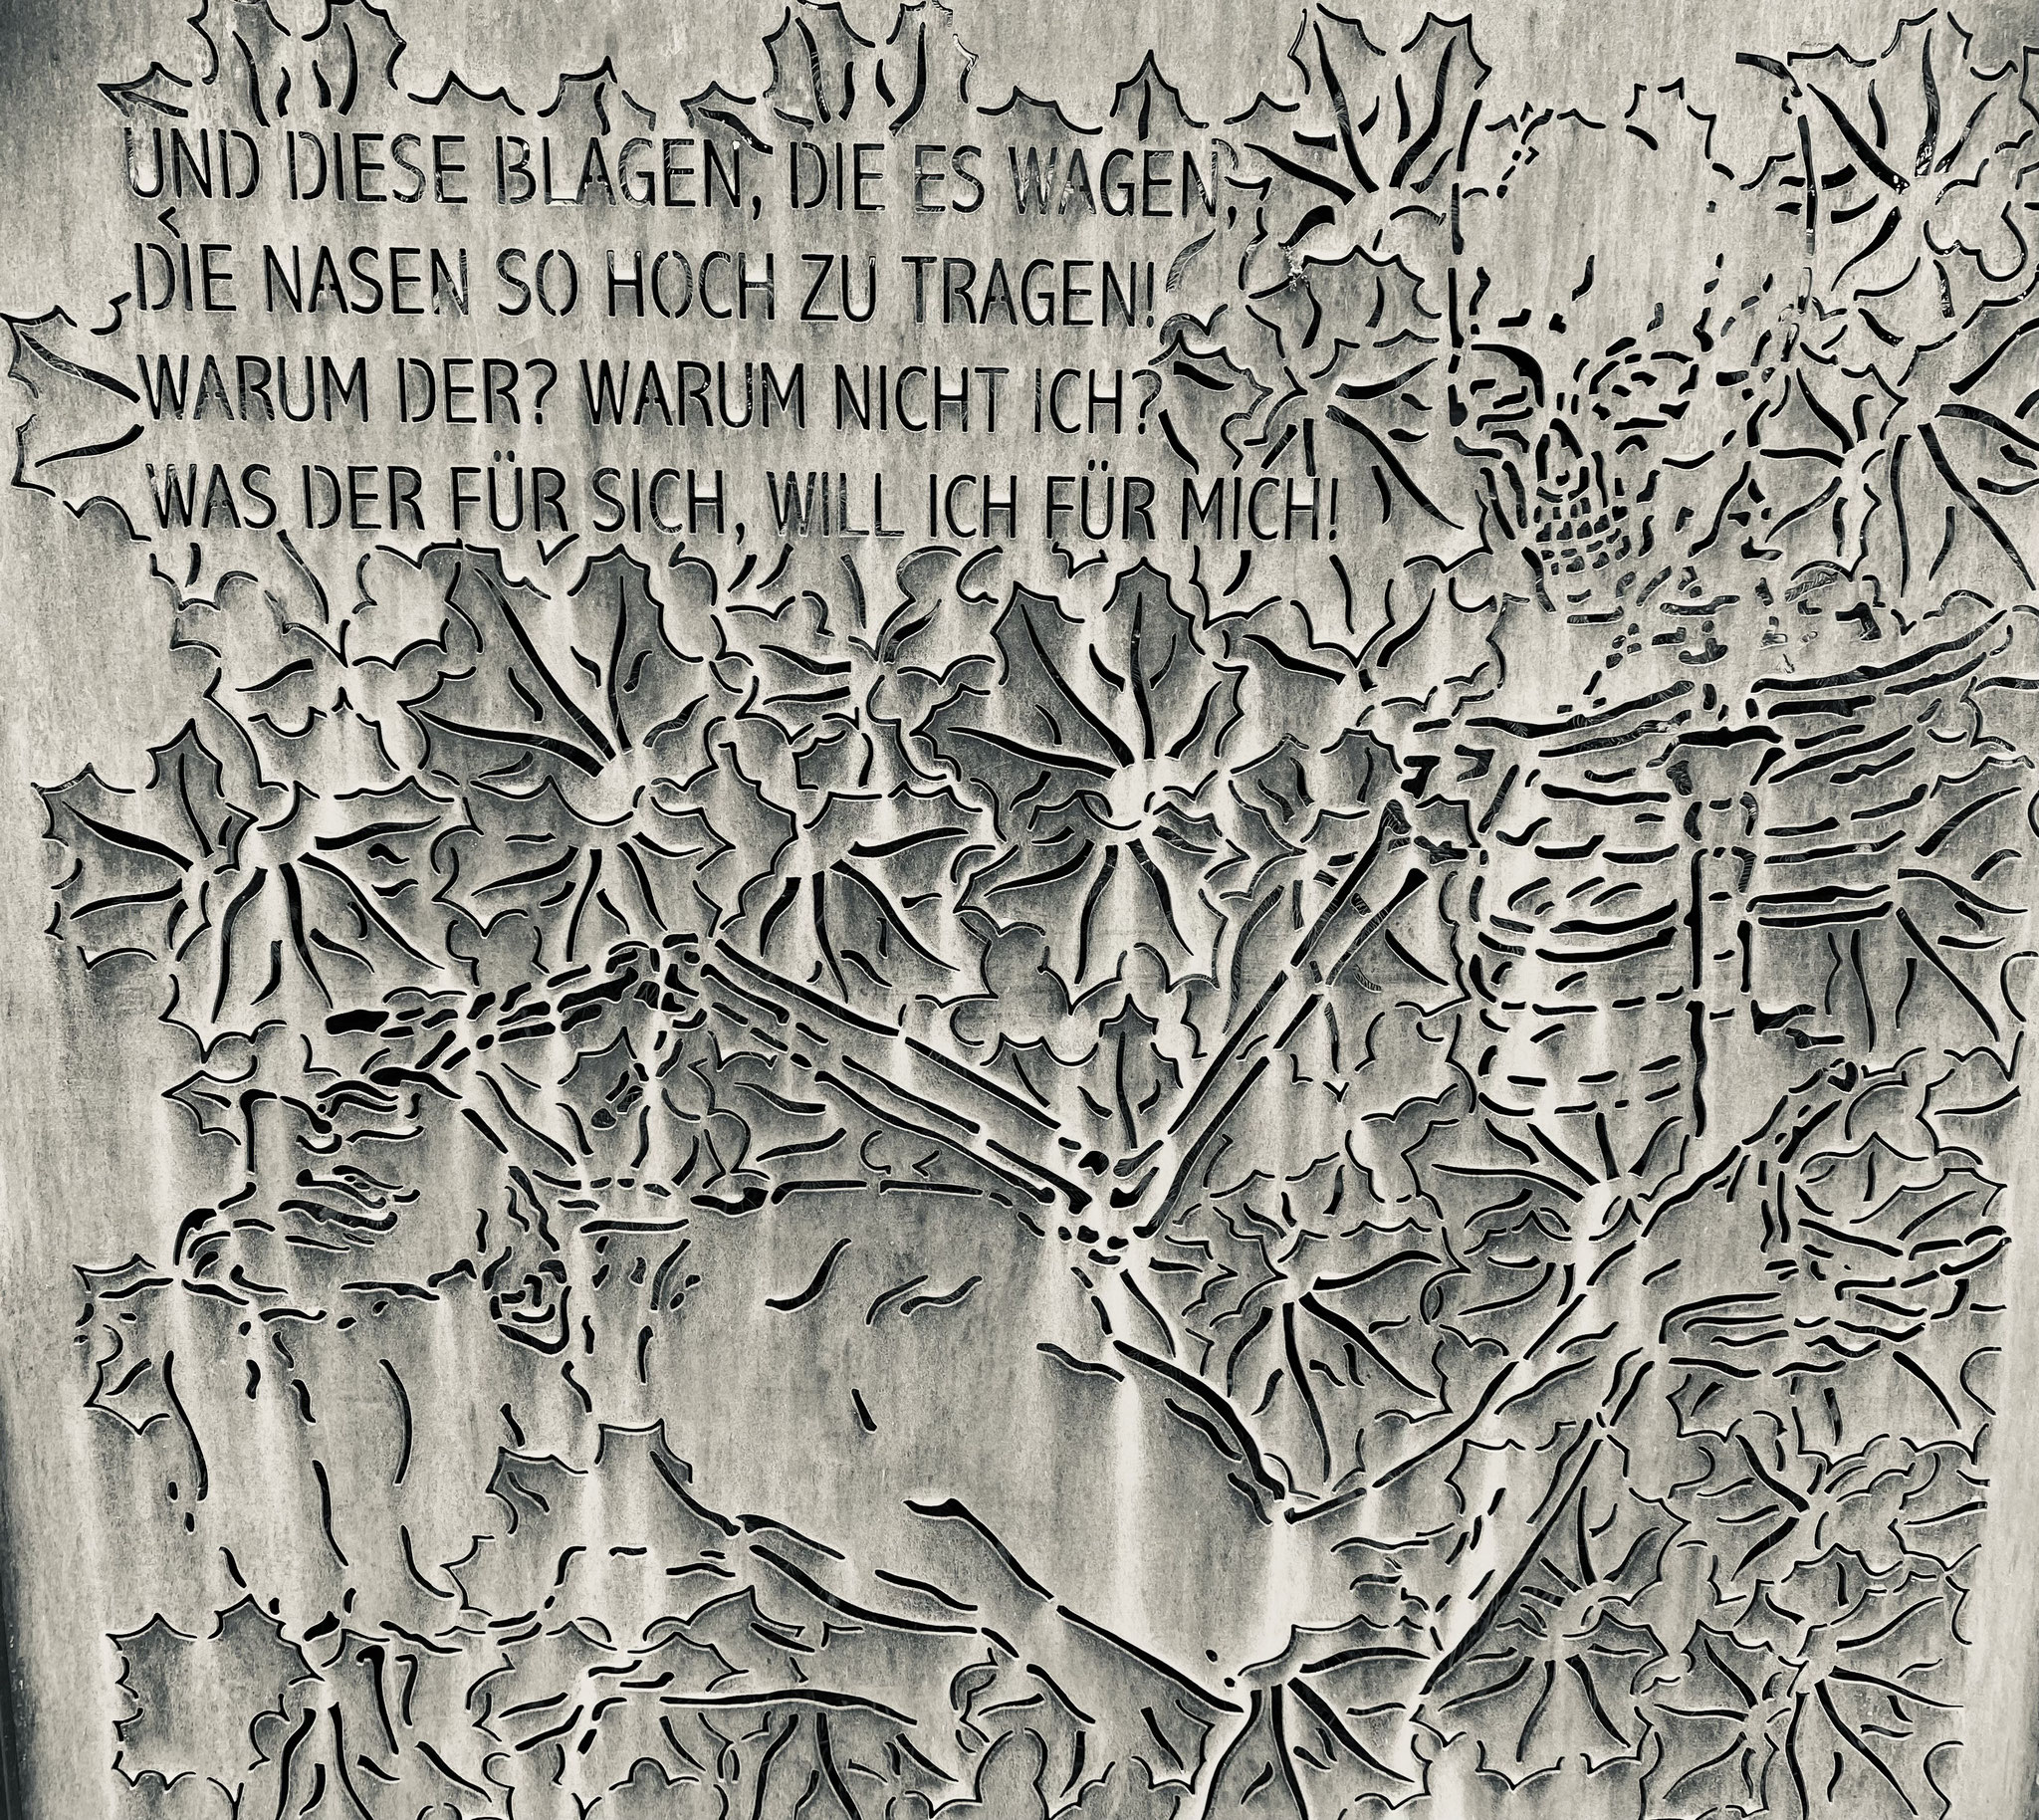 UND DIESE BLAGEN, DIE ES WAGEN,
DIE NASEN SO HOCH ZU TRAGEN!
WARUM DER? WARUM NICHT ICH?
WAS DER FÜR SICH, WILL ICH FÜR MICH!